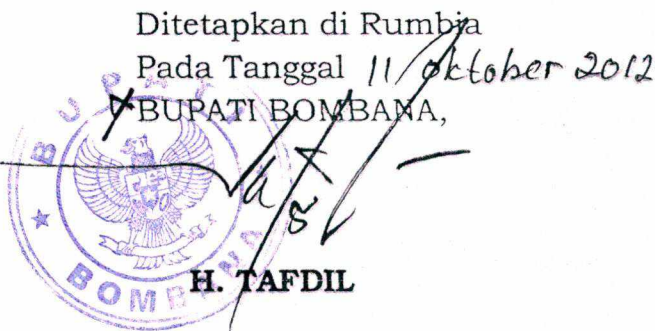 Ditetapkan di Rumbia
Pada Tanggal 11 Oktober 2012
BUPATI BOMBANA,
BUPATI
BOMBANA
H. TAFDIL